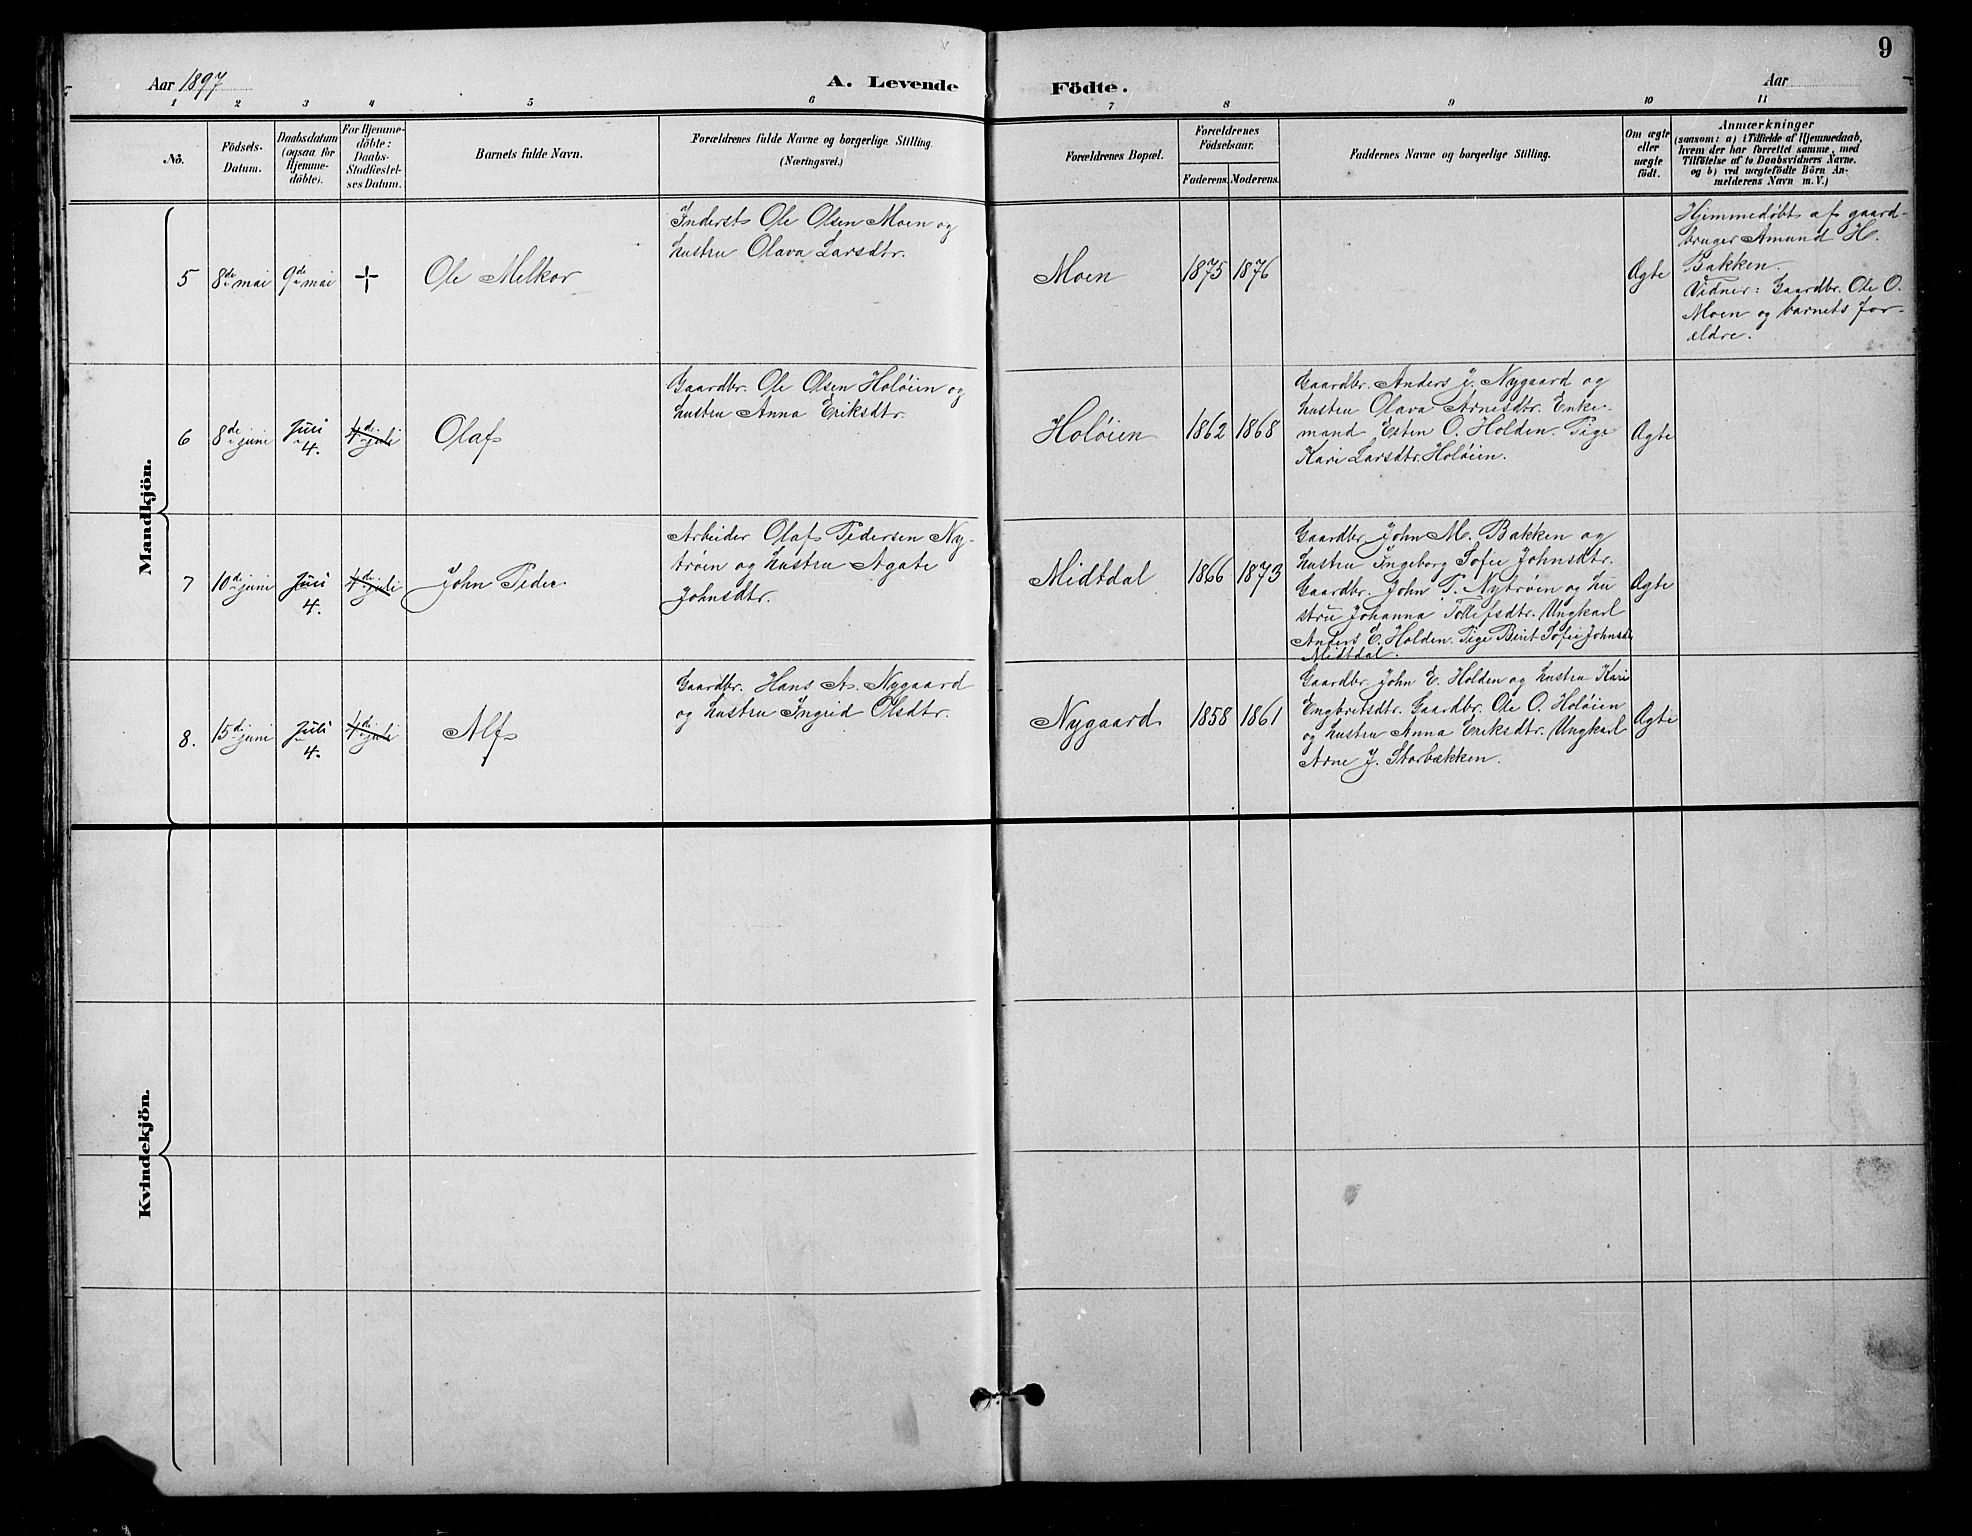 9
Aar 1897
A. Levende Födte.
Aar
1 2 3 4 5 6 7 8 9 10 11
No.
Födsels-
Datum.
Daabsdatum
(ogsaa for
Hjemme-
döbte).
For Hjemme-
döbte:
Daabs-
Stadfæstel-
ses Datum.
Barnets fulde Navn.
Forældrenes fulde Navne og borgerlige Stilling.
(Næringsvei.)
Forældrenes Bopæl.
Forældrenes
Födselsaar.
Faderens. Moderens.
Faddernes Navne og borgerlige Stilling.
Om ægte
eller
uægte
födt.
Anmærkninger
(saasom: a) i Tilfælde af Hjemmedaab,
hvem der har forrettet samme, med
Tilföielse af to Daabsvidners Navne,
og b) ved uægtefödte Börn An-
melderens Navn m. V.)
Mandkjön.
5
8de mai
9de mai
+
Ole Melkor
Inderst Ole Olsen Moen og
hustru Olava Larsdtr.
Moen
1875
1876
Ægte
Hjemmedøbt af gaard-
bruger Amund H.
Bakken.
Vidner: Gaardbr. Ole O.
Moen og barnets for-
ældre.
6
8de juni
Juli
4.
4de juli
Olaf
Gaardbr. Ole Olsen Holøien og
hustru Anna Eriksdtr.
Holøien
1862
1868
Gaardbr. Anders J. Nygaard og
hustru Olava Arnesdtr. Enke-
mand Esten O. Holden. Pige
Kari Larsdtr. Holøien.
Ægte
7
10de juni
Juli
4.
4de juli
John Peder
Arbeider Olaf Pedersen Ny-
trøen og hustru Agate
Johnsdtr.
Midtdal
1866
1873
Gaardbr. John M. Bakken og
hustru Ingeborg Sofie Johnsdtr.
Gaardbr. John P. Nytrøen og hu
stru Johanna Tollefsdtr. Ungkarl
Anders E. Holden. Pige Berit Sofie Johnsdt
Midtdal.
Ægte
8.
15de juni
Juli
4.
4de juli
Alf
Gaardbr. Hans A. Nygaard
og hustru Ingrid Olsdtr.
Nygaard
1858
1861
Gaardbr. John E. Holden og hustru Kari
Engbretsdtr. Gaardbr. Ole O. Holøien
og hustru Anna Eriksdtr. Ungkarl
Arne J. Storbækken.
Ægte
Kvindekjön.